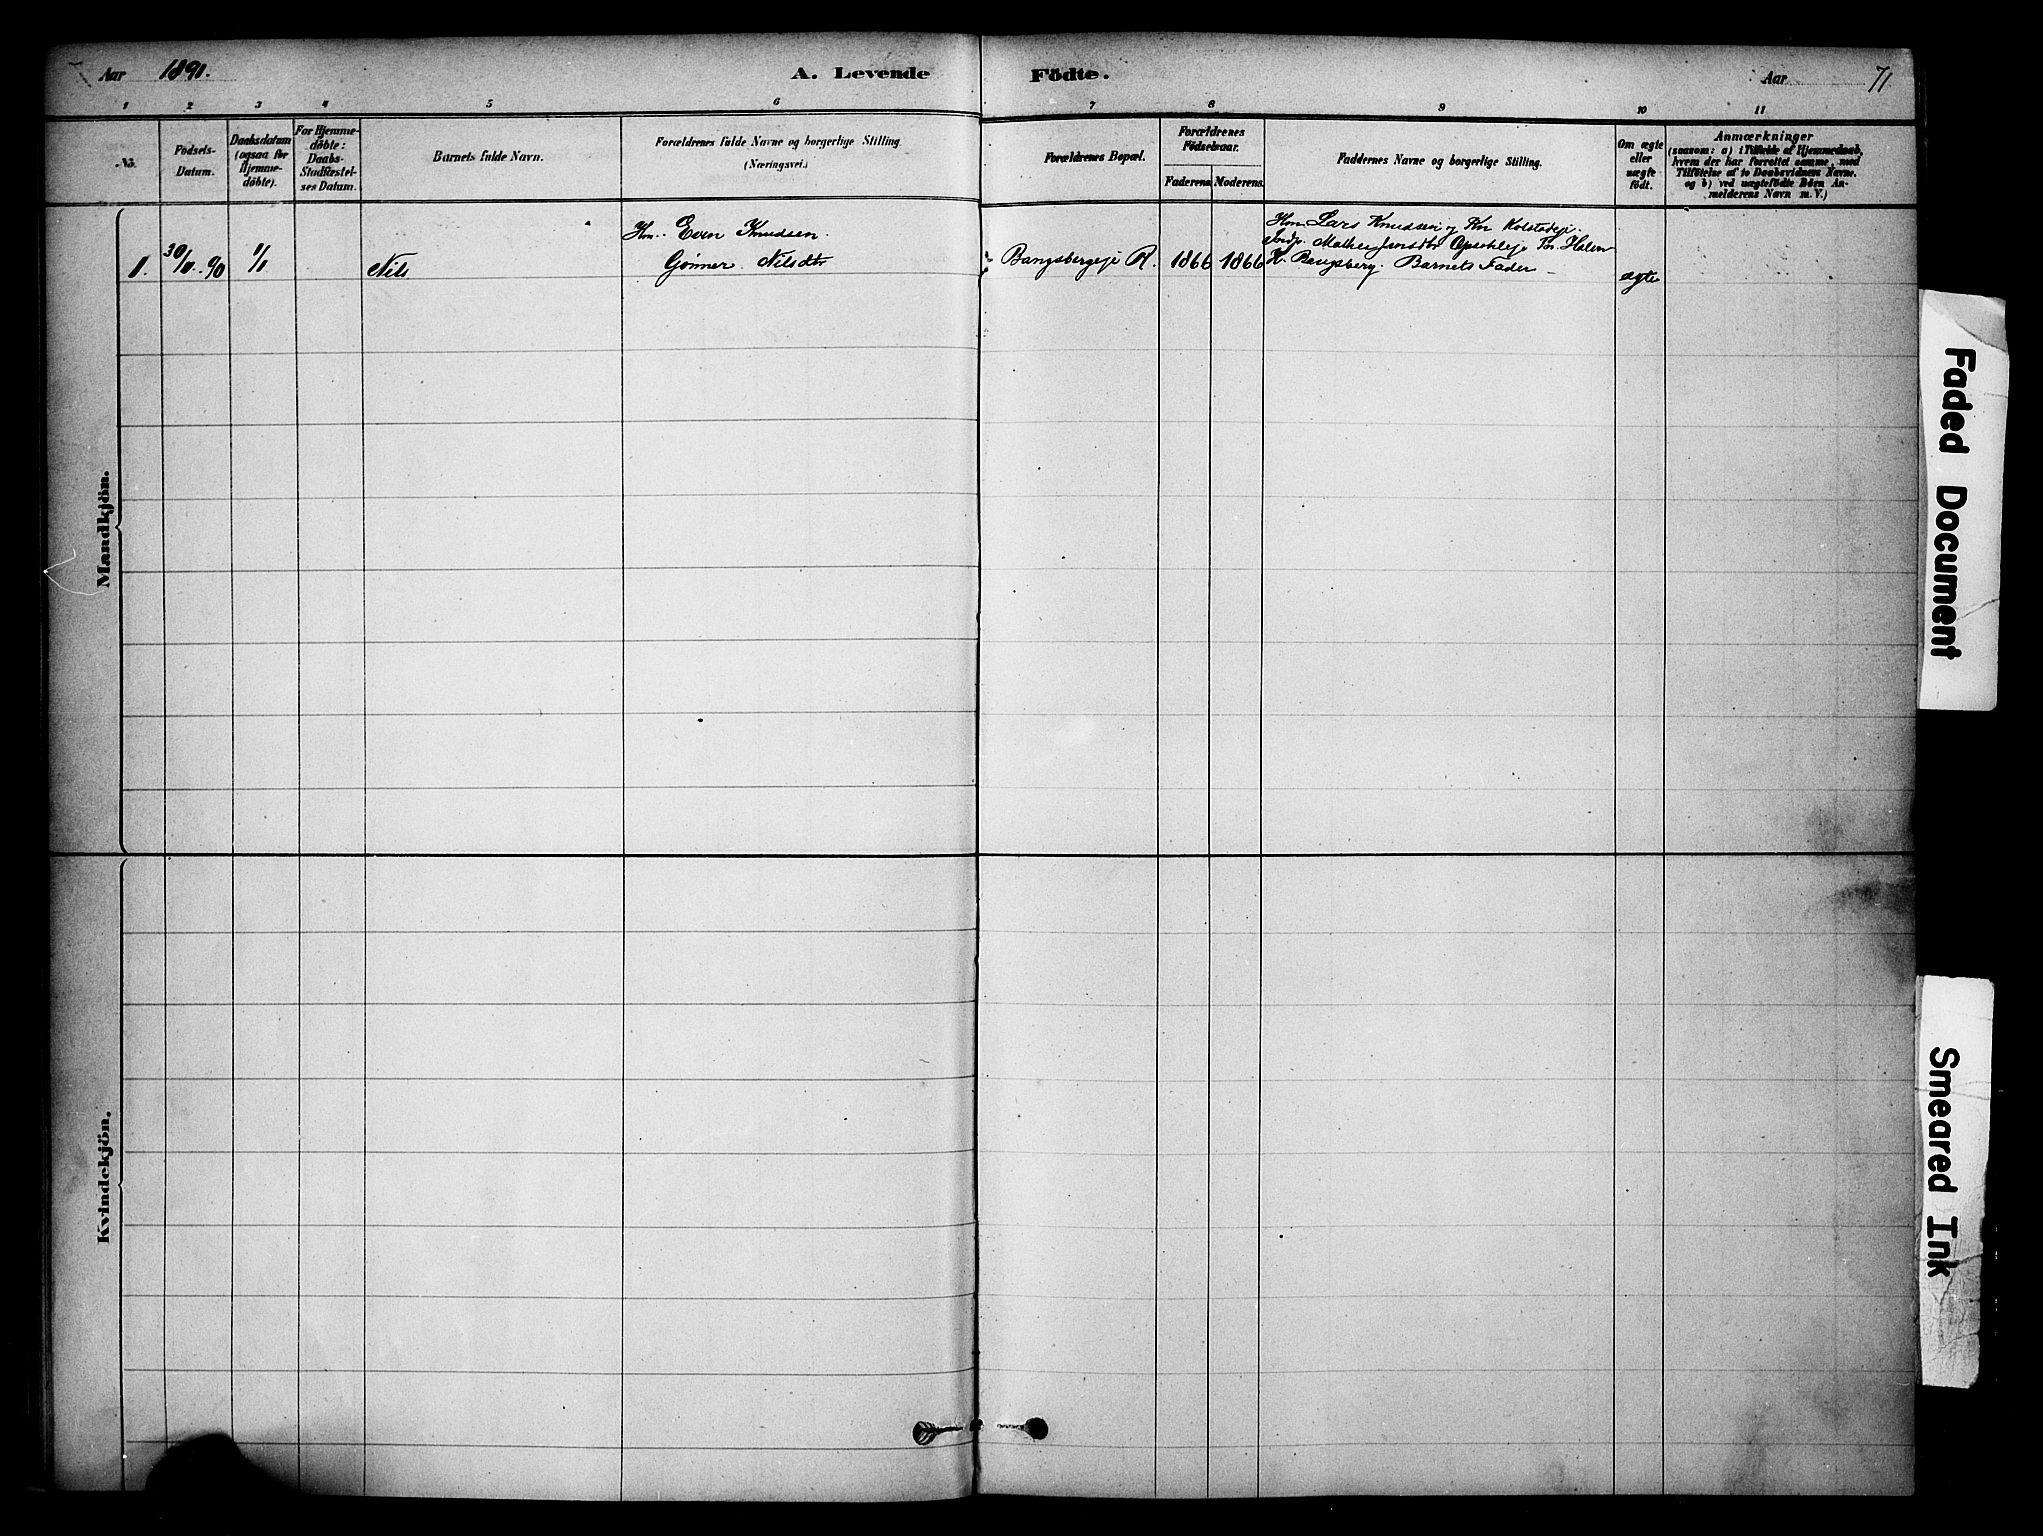 Aar 1891.
A. Levende Födte.
Aar 71
1 2 3 4 5 6 7 8 9 10 11
No.
Födsels-
Datum.
Daabsdatum
(ogsaa for
Hjemme-
döbte).
For Hjemme-
döbte:
Daabs-
Stadfæstel-
ses Datum.
Barnets fulde Navn.
Forældrenes fulde Navne og borgerlige Stilling.
(Næringsvei.)
Forældrenes Bopæl.
Forældrenes
Födselsaar.
Faderens. Moderens.
Faddernes Navne og borgerlige Stilling.
Om ægte
eller
uægte
födt.
Anmærkninger
(saasom: a) i Tilfælde af Hjemmedaab,
hvem der har forrettet samme, med
Tilföielse af to Daabsvidners Navne.
og b) ved uægtefödte Börn An-
melderens Navn m. V.)
Mandkjön.
1. 30/11 90 1/1 Nils
Hm. Even Knudsen
Gønner Nilsdtr
Bangsbergeje R. 1866 1866
Hm. Lars Knudsen og Kn Kolstadeje.
Mathea Opsahleje
Bangsberg. Barnets Fader
ægte
Kvindekjön.
Faded Document
Smeared Ink